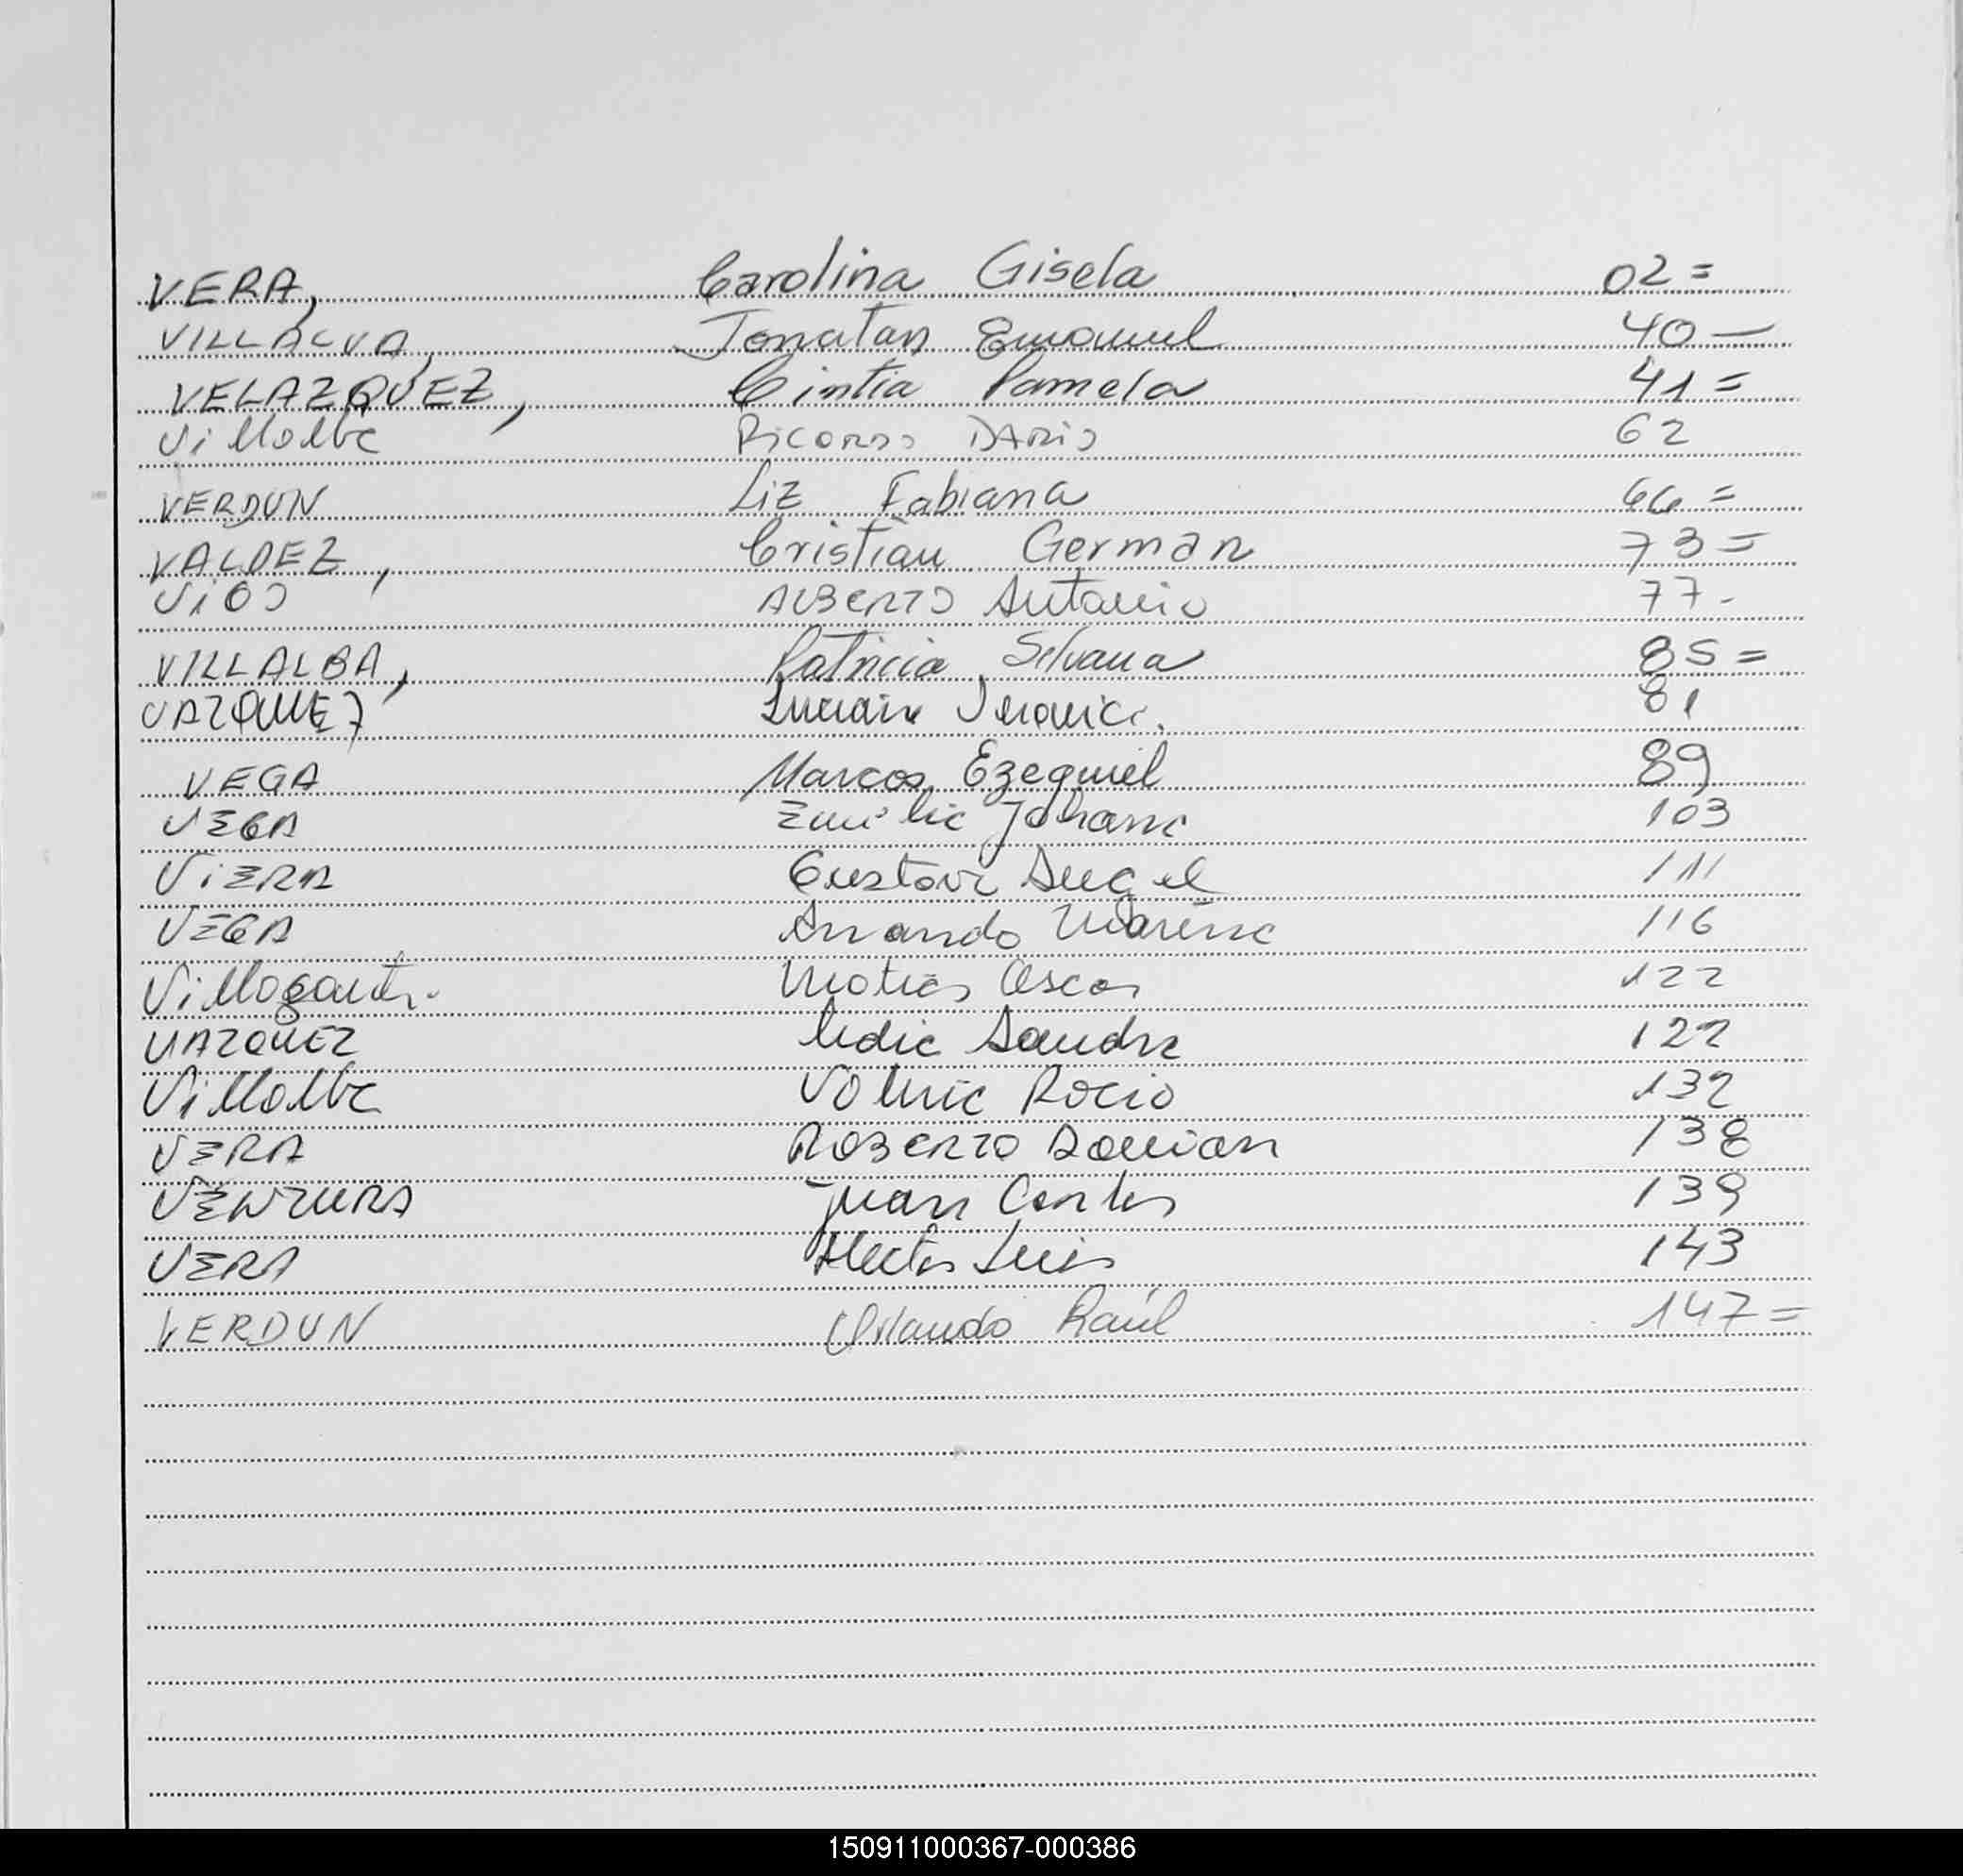 VERA, Carolina Gisela 02=
VILLALVA, Jonatan Emanuel 40—
VELAZQUEZ, Cintia Pamela 41=
Villalba Ricardo DARIO 62
VERDUN Liz Fabiana 66=
VALDEZ, Cristian German 73=
ALBERTO Antonio 77-
VILLALBA, Patricia Silvana 85=
VAZQUEZ 81
VEGA Marcos Ezequiel 89
VEGA Johana 103
VIERA Gustavo Angel 111
VEGA 116
Matias Oscar 122
VAZQUEZ Lidia Sandra 122
Villalba Rocio 132
VERA ROBERTO Damian 138
VENTURA Juan Carlos 139
VERA Hector Luis 143
VERDUN Orlando Raúl 147=
150911000367-000386